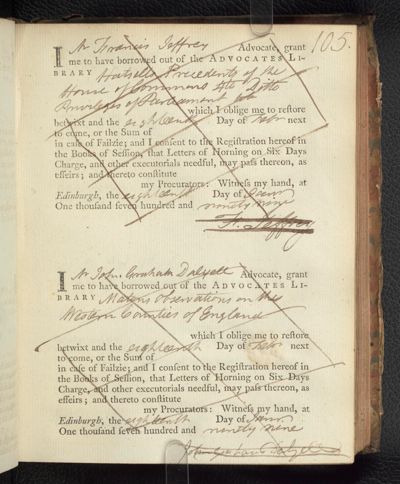 105.
I Mr Francis Jeffrey Advocate, grant
me to have borrowed out of the ADVOCATES LI-
BRARY Hatsells Precedents of the
House of Commons 4to Ditto
Privileges of Parliament
which I oblige me to restore
betwixt and the eighteenth Day of Febr next
to come, or the Sum of
in case of Failzie; and I consent to the Registration hereof in
the Books of Session, that Letters of Horning on Six Days
Charge, and other executorials needful, may pass thereon, as
effeirs; and thereto constitute
my Procurators: Witness my hand, at
Edinburgh, the eighteenth Day of Janry
One thousand seven hundred and ninety nine
F. Jeffrey
I Mr John Graham Dalyell Advocate, grant
me to have borrowed out of the ADVOCATES LI-
BRARY Matons observations on the
Western Counties of England
which I oblige me to restore
betwixt and the eighteenth Day of Febr next
to come, or the Sum of
in case of Failzie; and I consent to the Registration hereof in
the Books of Session, that Letters of Horning on Six Days
Charge, and other executorials needful, may pass thereon, as
effeirs; and thereto constitute
my Procurators: Witness my hand, at
Edinburgh, the eighteenth Day of Janry
One thousand seven hundred and ninety nine
John Graham Dalyell